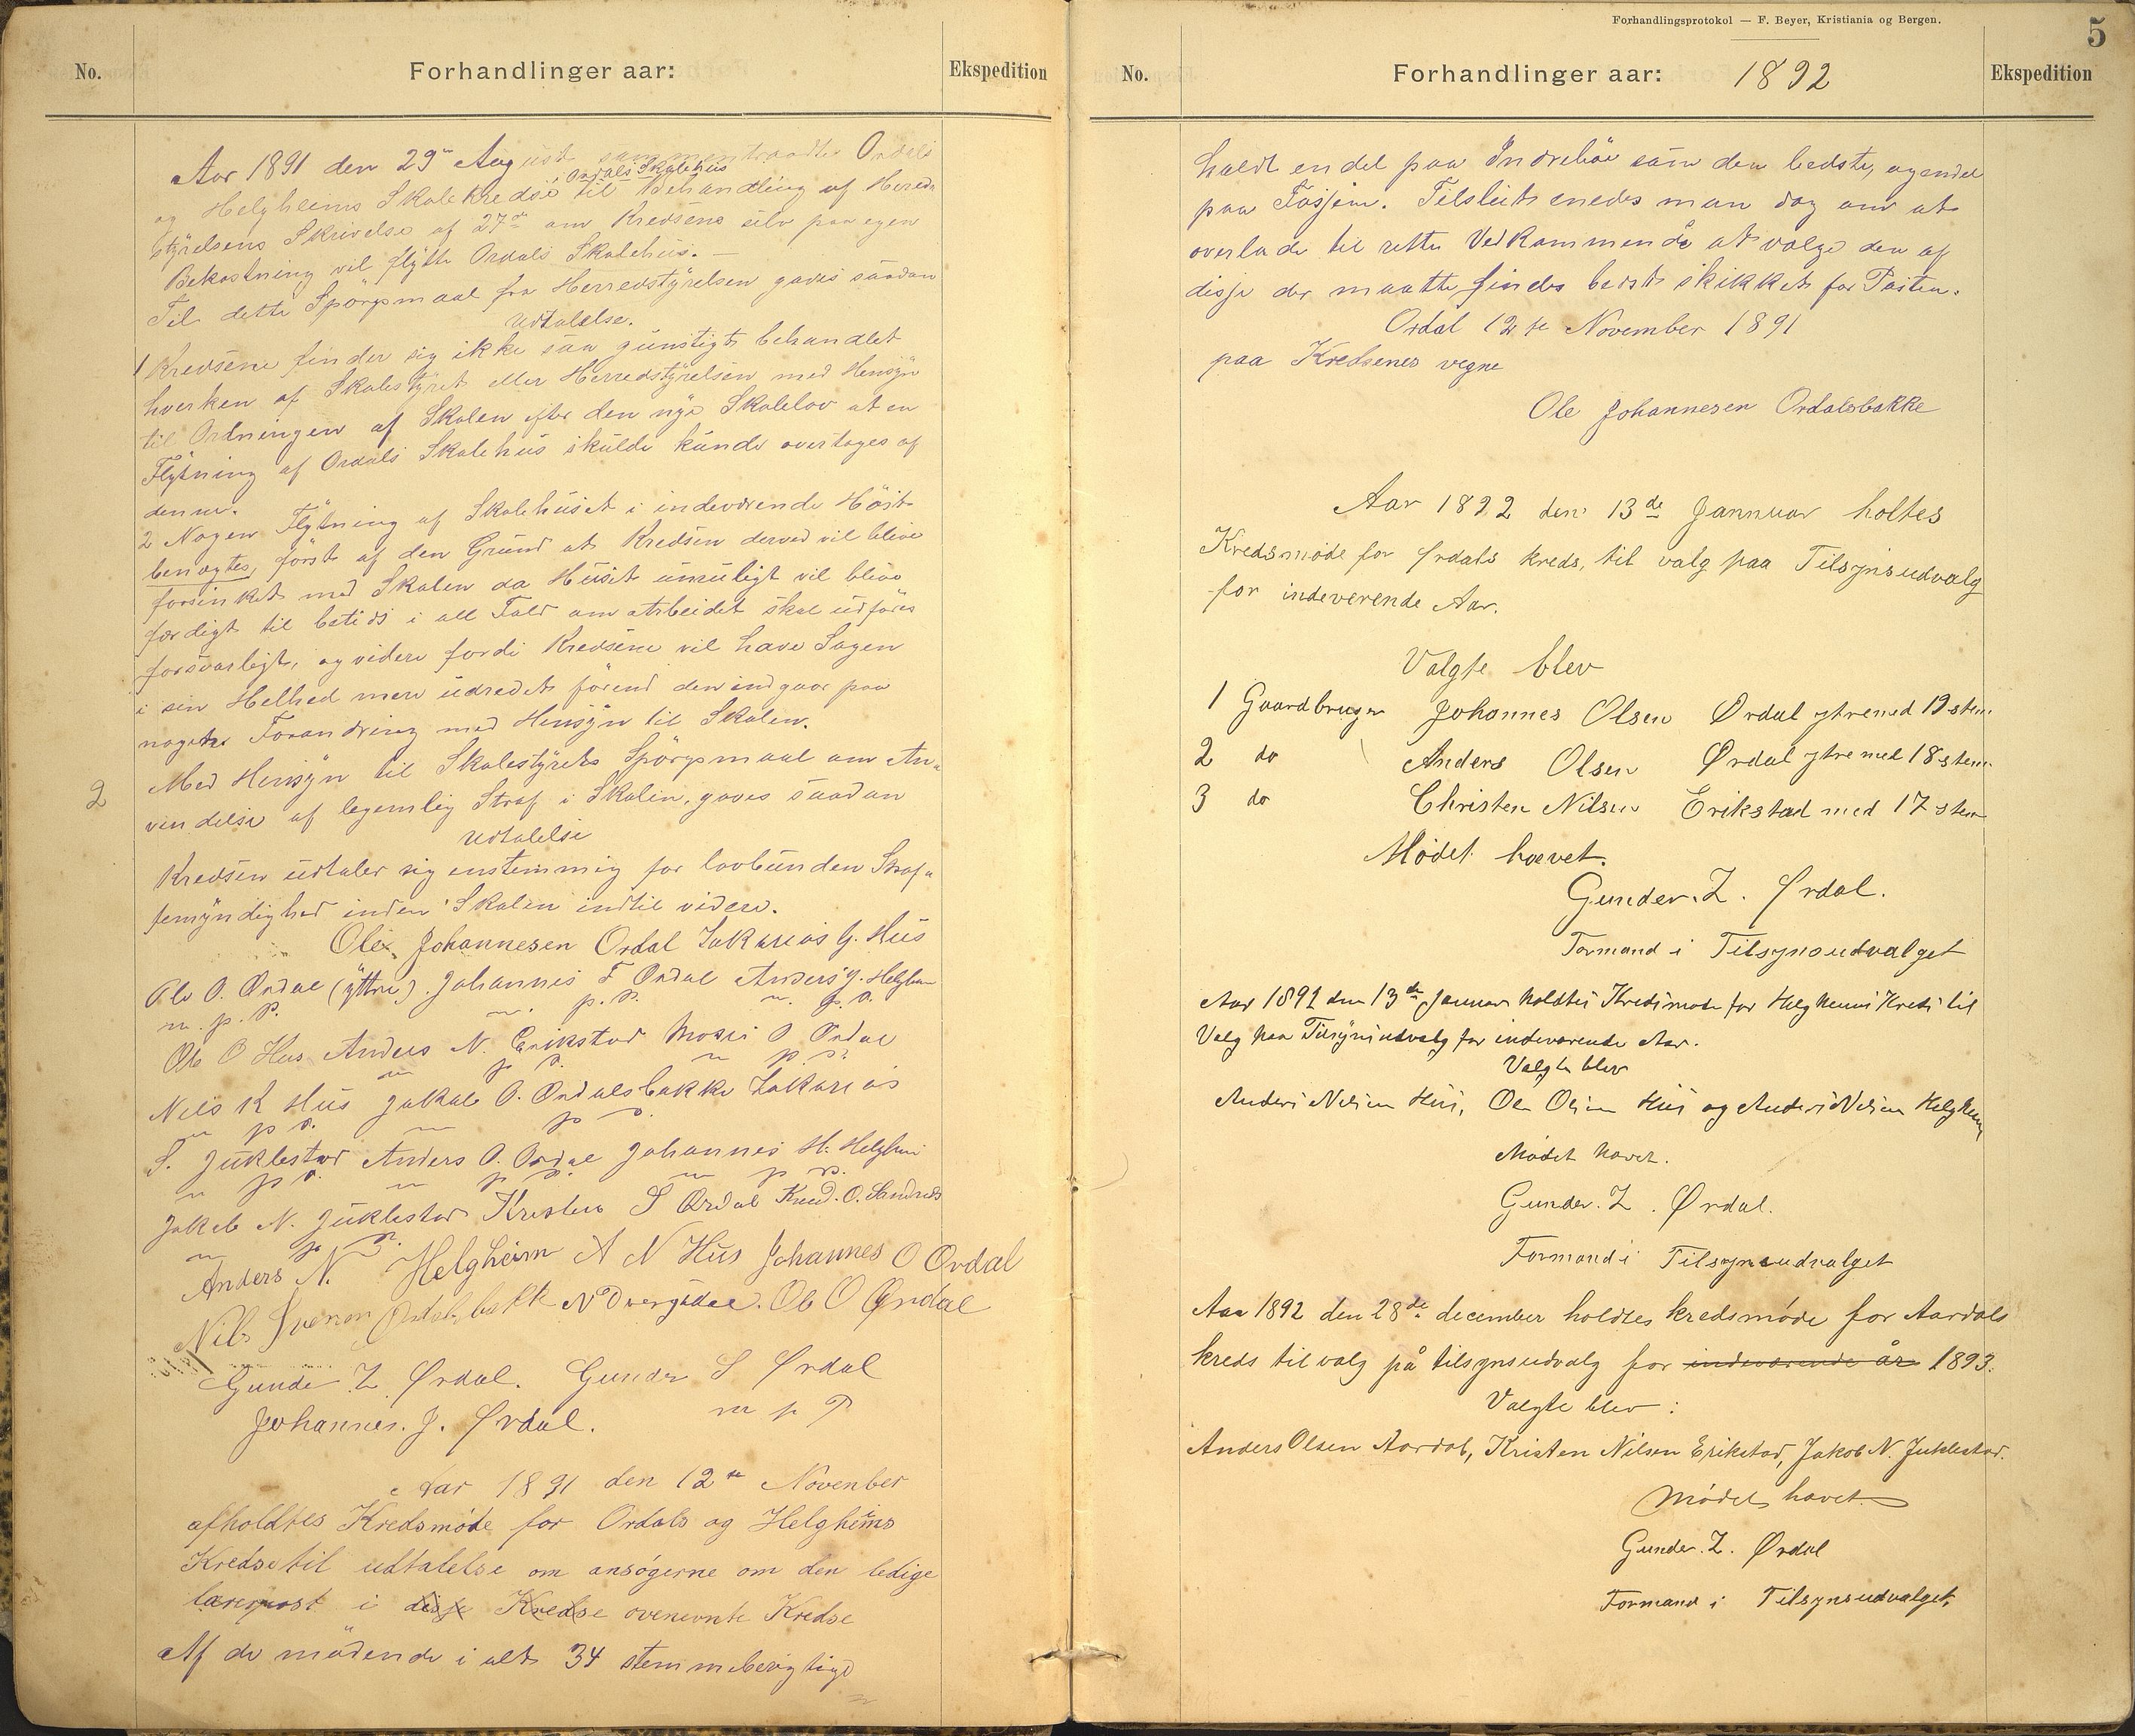 No.
Forhandlinger aar:
Ekspedition
Aar 1891 den 29de August sammentraadte Ordals
og Helgheims Skolekredse til Behandling af Hereds
Ordals Skolehus
styrelsens Skrivelse af 27de om Kredsene selv paa egen
Bekostning vil flytte Ordals Skolehus. —
Til dette Spörgsmaal fra Herredstyrelsen gaves saadan
Udtalelse.
1 Kredsene finder sig ikke saa gunstigt behandlet
hverken af Skolestyret eller Herredstyrelsen med Hensyn
til Ordningen af Skolen efter den nye Skolelov at en
Flytning af Ordals Skolehus skulde kunde overtages af
denne.
2 Nogen Flytning af Skolehuset i indeværende Höst
benægtes, först af den Grund at Kredsen derved vil blive
forsinket med Skolen da Huset umuligt vil blive
færdigt til betids i all Fald om Arbeidet skal udföres
forsvarligt, og videre fordi Kredsene vil have Sagen
i sin Helhed mere udredet förend den indgaar paa
nogen Forandring med Hensyn til Skolen.
2
Med Hensyn til Skolestyrets Spörgsmaal om An-
vendelse af legemlig Straf i Skolen, gaves saadan
Udtalelse
Kredsen udtaler sig enstemmig for lovbunden Straf-
femyndighed inden Skolen indtil videre.
Ole Johannesen Ordal Zakarias G. Hus
Ole O. Ordal (yttre). Johannes F Ordal Anders J. Helghem
m. p. P. m. p. P. m. p. P.
Ole O Hus Anders N. Erikstad Moses O Ordal
m p P. m p P.
Nils K Hus Jakob O. Ordalsbakke Zakarias
m p P. m p P.
S. Juklestad Anders O. Ordal Johannes H. Helghem
m p P. m p P. m p P.
Jakob N. Juklestad Kristen S Ordal Knud. O. Sandnes
m p P.
Anders N. Helgheim A N Hus Johannes O Ordal
Nils Ivenen Ordalsbakk N Dvergsdal. Ole O Ørdal
Gunder Z Ørdal. Gunder S Ørdal
m p P
Johannes. J. Ørdal.
Aar 1891 den 12te November
afholdtes Kredsmöte for Ordals og Helgheims
Kredse til udtalelse om ansögerne om den ledige
lærerpost i disse Kredse ovenevnte Kredse
Af de mödende i alt 34 stemmeberigtige
Forhandlingsprotokol — F. Beyer, Kristiania og Bergen.
5
No.
Forhandlinger aar: 1892
Ekspedition
holdt en del paa Indrebö som den bedste, og endel
paa Fosjem. Tilslut enedes man dog om at
overlade til rette Vedkommende at vælge den af
disse der maatte findes bedst skikket for Posten.
Ordal 12te November 1891
paa Kredsenes vegne
Ole Johannesen Ordalsbakke
Aar 1892 den 13de Jannuar holtes
Kredsmöde for Ørdals kreds, til valg paa Tilsynsudvalg
for indeverende Aar.
Valgte blev
1 Gaardbruger Johannes Olsen Ørdal ytre med 19 stem.
2 do Anders Olsen Ørdal ytre med 18 stem.
3 do Christen Nilsen Erikstad med 17 stem
Mödet hævet.
Gunder. Z. Ørdal.
Formand i Tilsynsudvalget
Aar 1892 den 13de Januar holdtes Kredsmöde for Helghems Kreds til
Valg paa Tilsynsudvalg for indeværende Aar.
Valgte blev
Anders Nilsen Hus, Ole Olsen Hus og Anders Nilsen Helghem
Mödet hævet.
Gunder. Z. Ørdal.
Formand i Tilsynsudvalget
Aar 1892 den 28de december holdtes kredsmøde for Aardals
kreds til valg på tilsynsudvalg for indeværende år 1893.
Valgte blev:
Anders Olsen Aardal, Kristen Nilsen Erikstad, Jakob N. Juklestad.
Mödet hævet
Gunder. Z. Ørdal
Formand i Tilsynsudvalget.